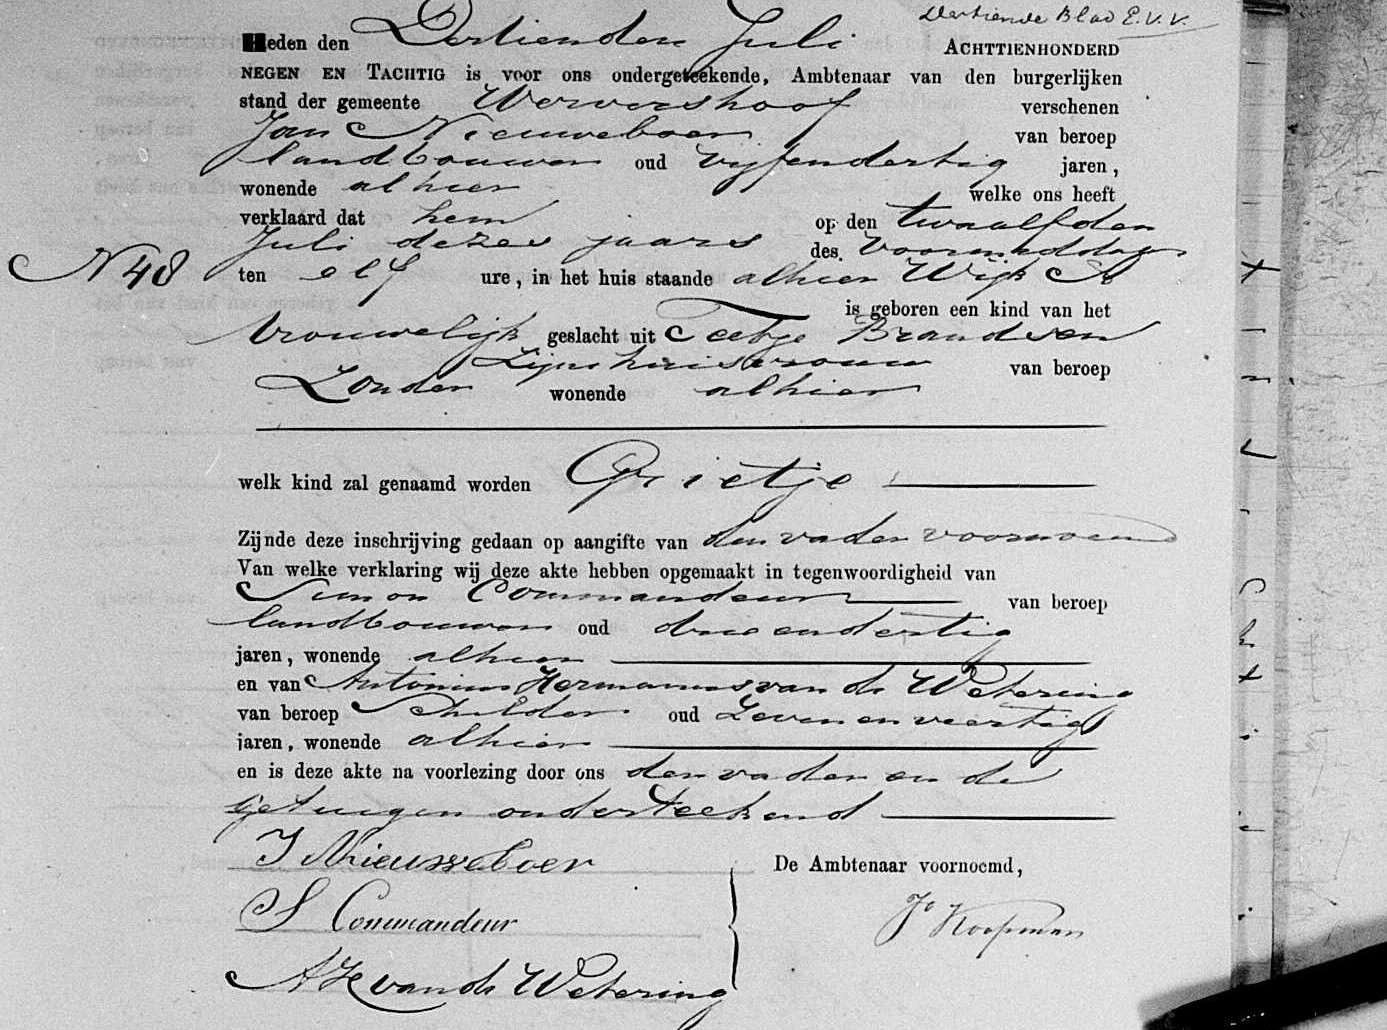 Dertiende Blad E.V.V.
Heden den Dertienden Juli ACHTTIENHONDERD
NEGEN EN TACHTIG is voor ons ondergeteekende, Ambtenaar van den burgerlijken
stand der gemeente Wervershoof verschenen
Jan Nieuweboer van beroep
landbouwer oud vijfendertig jaren,
wonende alhier welke ons heeft
verklaard dat hem op den twaalfden
Juli dezes jaars des voormiddags
N 48 ten elf ure, in het huis staande alhier Wijk
is geboren een kind van het
vrouwelijk geslacht uit Teetje Brandsen
Zijne huisvrouw van beroep
Zonder wonende alhier
welk kind zal genaamd worden Grietje
Zijnde deze inschrijving gedaan op aangifte van den vader voornoemd
Van welke verklaring wij deze akte hebben opgemaakt in tegenwoordigheid van
Simon Commandeur van beroep
landbouwer oud drieendertig
jaren, wonende alhier
en van Antonius Hermanus van de Wetering
van beroep Schilder oud Zevenenveertig
jaren, wonende alhier
en is deze akte na voorlezing door ons den vader en de
getuigen onderteekend
J Nieuweboer
De Ambtenaar voornoemd,
S Commandeur
Jb Koopman
A H van de Wetering